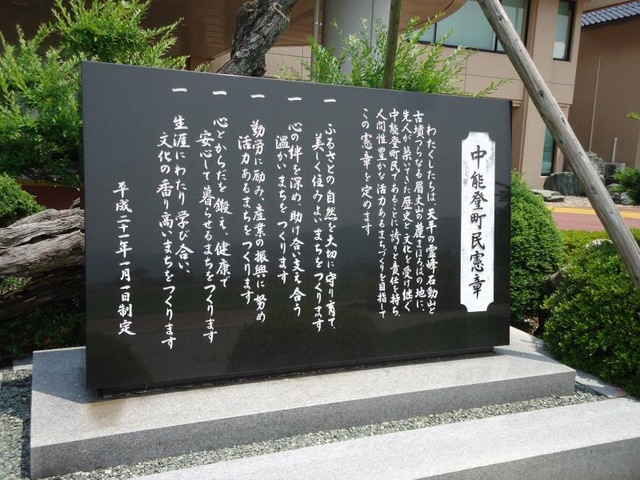 中能登町民憲章
わたくしたちは、天平の霊峰石動山と
古墳つらなる眉丈山の麓まほろばの地に、
先人が築いてきた歴史と文化を受け継ぐ
中能登町民であることに誇りと責任を持ち、
人間性豊かな活力あるまちづくりを目指して
この憲章を定めます
一 ふるさとの自然を大切に守り育て、
美しく住みよいまちをつくります
一 心の絆を深め、助け合い支え合う
温かいまちをつくります
一 勤労に励み、産業の振興に努め
活力あるまちをつくります
一 心とからだを鍛え、健康で
安心して暮らせるまちをつくります
一 生涯にわたり学び合い、
文化の香り高いまちをつくります
平成二十一年一月一日制定